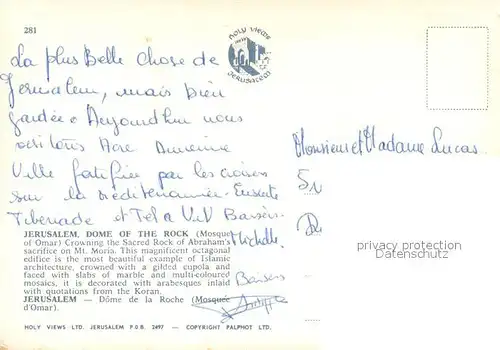 281
HOLY VIEWS
JERUSALEM
La plus Belle chose de
Jerusalem, mais bien
gardée. Aujourd'hui nous
visitons Acre Ancienne
Ville fortifiée par les croisés
sur la méditerranée. Ensuite
Tiberiade et Tel a ViV Baisers
Michelle.
Baisers
Monsieur et Madame Lucas
51
JERUSALEM, DOME OF THE ROCK (Mosque
of Omar) Crowning the Sacred Rock of Abraham's
sacrifice on Mt. Moria. This magnificent octagonal
edifice is the most beautiful example of Islamic
architecture, crowned with a gilded cupola and
faced with slabs of marble and multi-coloured
mosaics, it is decorated with arabesques inlaid
with quotations from the Koran.
JERUSALEM — Dôme de la Roche (Mosquée
d'Omar).
privacy protection
Datenschutz
HOLY VIEWS LTD. JERUSALEM P.O.B. 2497 — COPYRIGHT PALPHOT LTD.